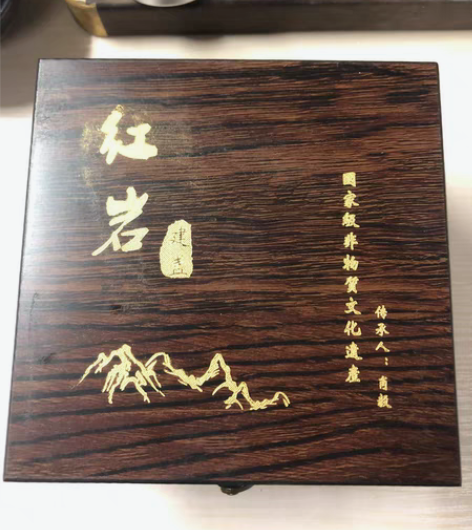 红岩
建盏
國家级非物質文化遺產
传承人：肖毅